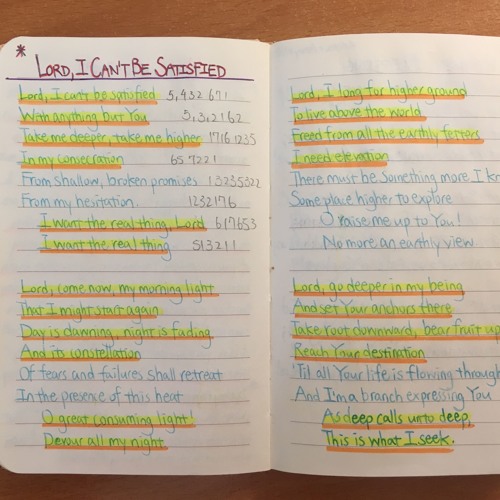 * LORD, I CAN'T BE SATISFIED
Lord, I can't be satisfied 5,432 671
With anything but You 5,3,2162
Take me deeper, take me higher 1716 1235
In my consecration 65 7221
From shallow, broken promises 13235322
From my hesitation. 1232176
I want the real thing, Lord 617653
I want the real thing 513211
Lord, come now, my morning light
That I might start again
Day is dawning, night is fading
And its constellation
Of fears and failures shall retreat
In the presence of this heat
O great consuming light!
Devour all my night
Lord, I long for higher ground
To live above the world
Freed from all the earthly fetters
I need elevation
There must be something more I
Some place higher to explore
O raise me up to You!
No more an earthly view
Lord, go deeper in my being
And set Your anchors there
Take root downward, bear fruit up
Reach Your destination
'Til all Your life is flowing through
And I'm a branch expressing You
As deep calls unto deep,
This is what I seek.